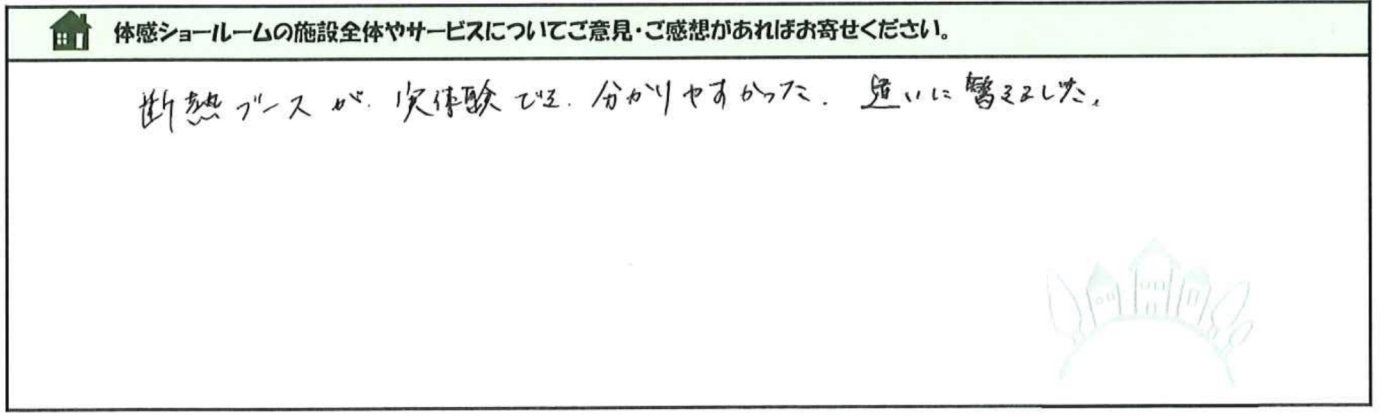 体感ショールームの施設全体やサービスについてご意見・ご感想があればお寄せください。
断熱ブースが、実体験でき、分かりやすかった。違いに驚きました。